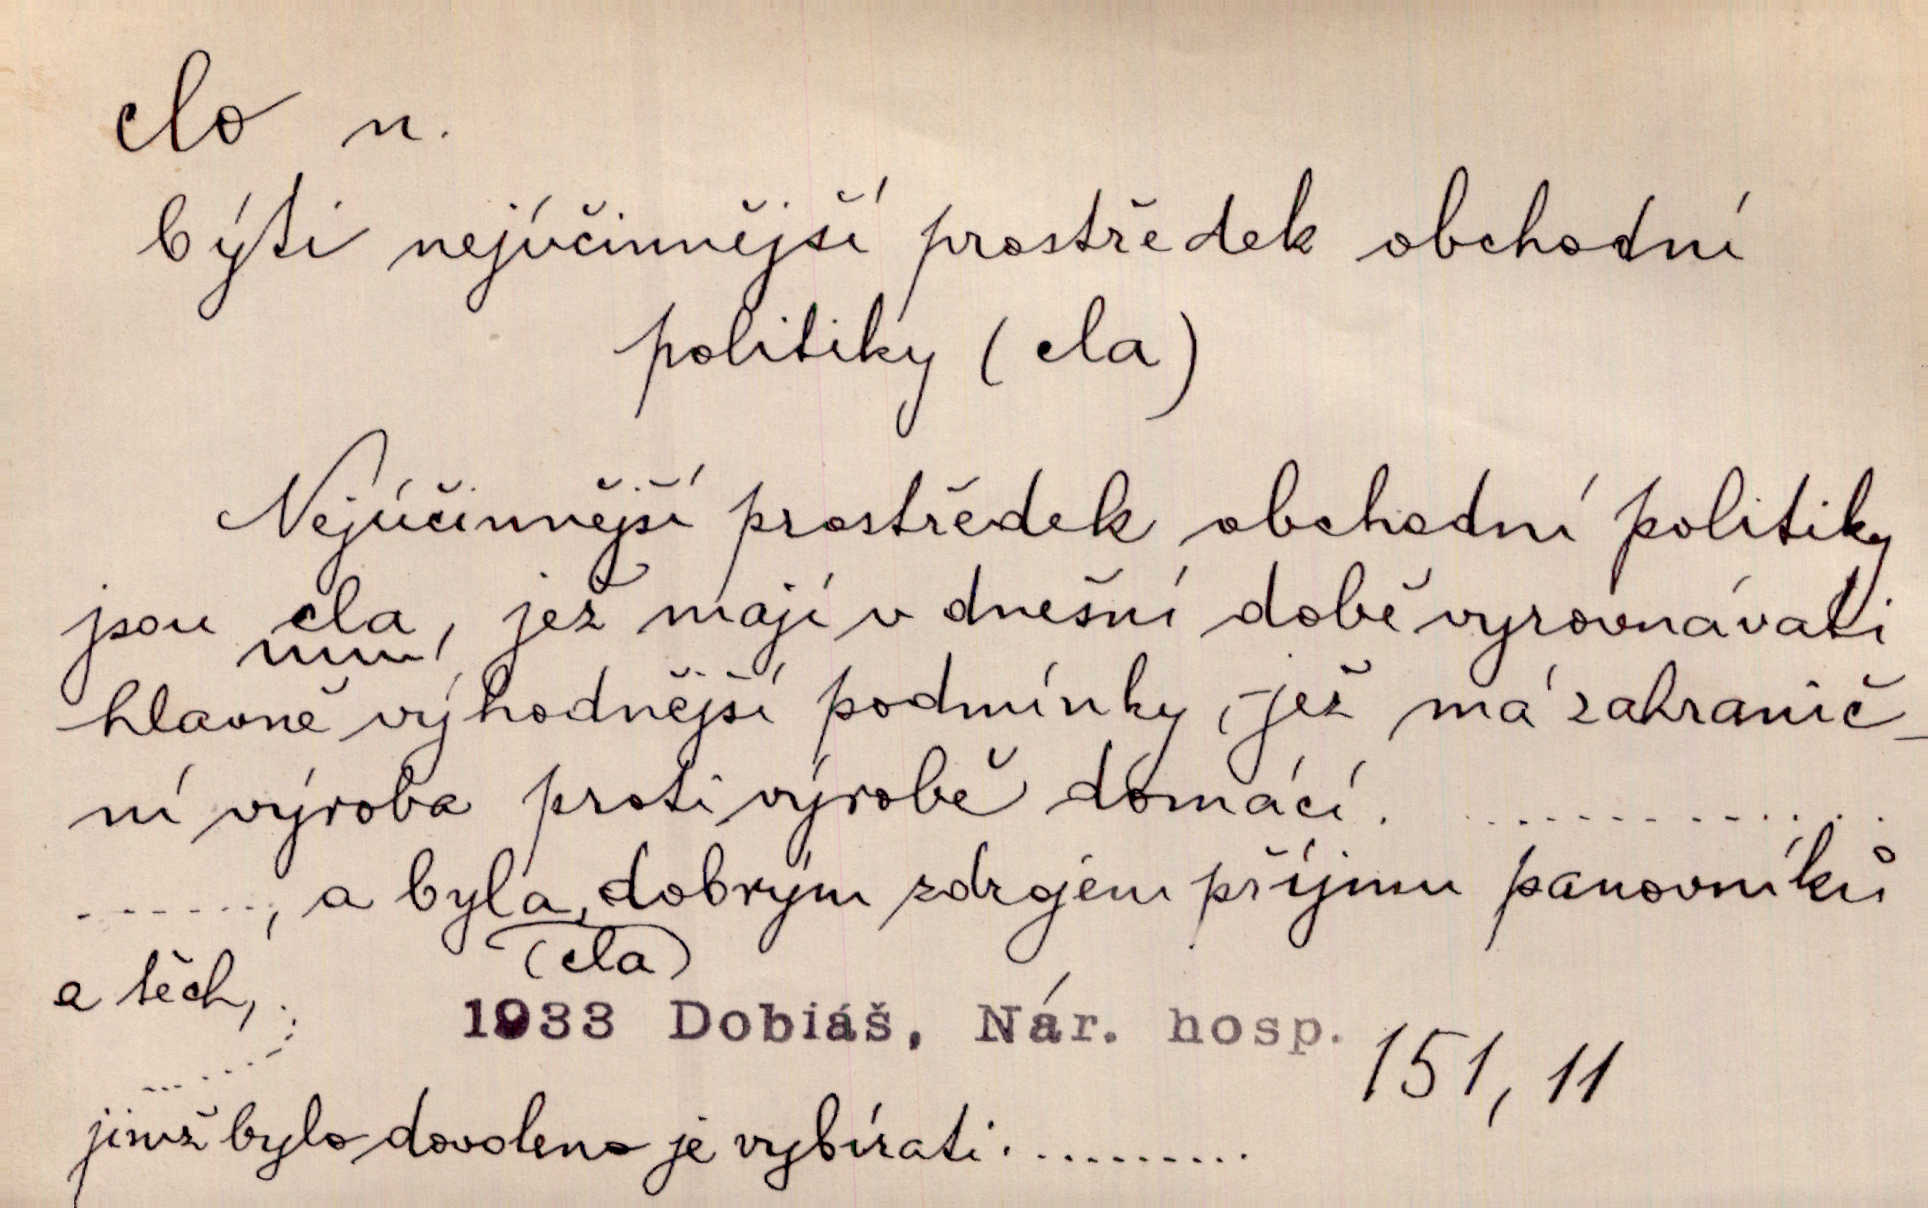 clo n.
býti nejúčinnější prostředek obchodní
politiky (cla)
Nejúčinnější prostředek obchodní politiky
jsou cla, jež mají v dnešní době vyrovnávati
hlavně výhodnější podmínky, jež má zahranič-
ní výroba proti výrobě domácí. ..............
......., a byla dobrým zdrojem příjmu panovníků
(cla)
a těch,
1933 Dobiáš, Nár. hosp. 151, 11
jimž bylo dovoleno je vybírati. ..........